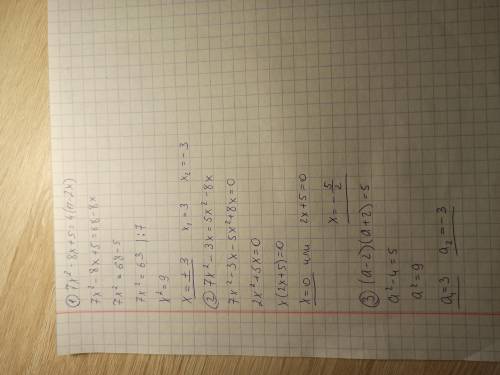 ① 7x² - 8x + 5 = 4(17-2x)
7x² - 8x + 5 = 68 - 8x
7x² = 68 - 5
7x² = 63 | : 7
x² = 9
x = ± 3 x₁ = 3 x₂ = -3
② 7x² - 3x = 5x² - 8x
7x² - 3x - 5x² + 8x = 0
2x² + 5x = 0
x(2x + 5) = 0
x = 0 или 2x + 5 = 0
x = -5/2
③ (a-2)(a+2) = 5
a² - 4 = 5
a² = 9
a₁ = 3 a₂ = -3